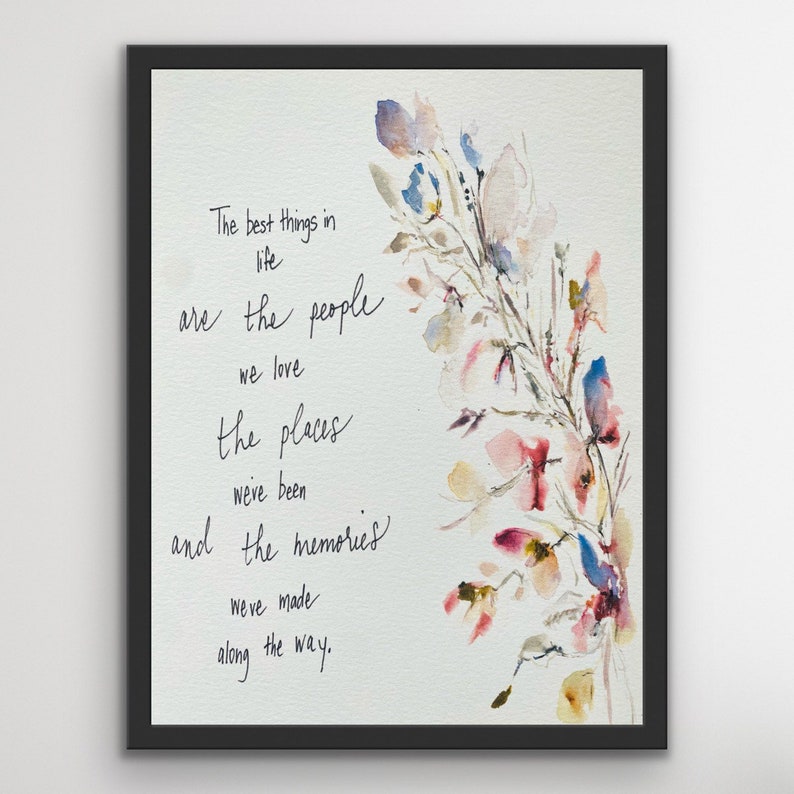 The best things in
life
are the people
we love
the places
we've been
and the memories
we've made
along the way.